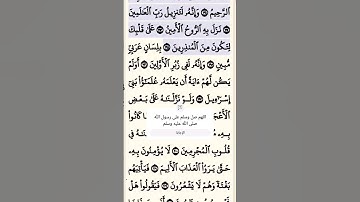 ٱلرَّحِيمُ وَإِنَّهُۥ لَتَنزِيلُ رَبِّ ٱلْعَٰلَمِينَ
نَزَلَ بِهِ ٱلرُّوحُ ٱلْأَمِينُ عَلَىٰ قَلْبِكَ
لِتَكُونَ مِنَ ٱلْمُنذِرِينَ بِلِسَانٍ عَرَبِىٍّ
مُّبِينٍ وَإِنَّهُۥ لَفِى زُبُرِ ٱلْأَوَّلِينَ أَوَلَمْ
يَكُن لَّهُمْ ءَايَةً أَن يَعْلَمَهُۥ عُلَمَٰٓؤُا۟ بَنِىٓ
إِسْرَٰٓءِيلَ وَلَوْ نَزَّلْنَٰهُ عَلَىٰ بَعْضِ
ٱلْأَعْجَ كَانُوا۟
اللهم صل وسلم على رسول الله
صلى الله عليه وسلم
بِهِۦ
قُلُوبِ ٱلْمُجْرِمِينَ لَا يُؤْمِنُونَ بِهِۦ
حَتَّىٰ يَرَوُا۟ ٱلْعَذَابَ ٱلْأَلِيمَ فَيَأْتِيَهُم
بَغْتَةً وَهُمْ لَا يَشْعُرُونَ فَيَقُولُوا۟ هَلْ